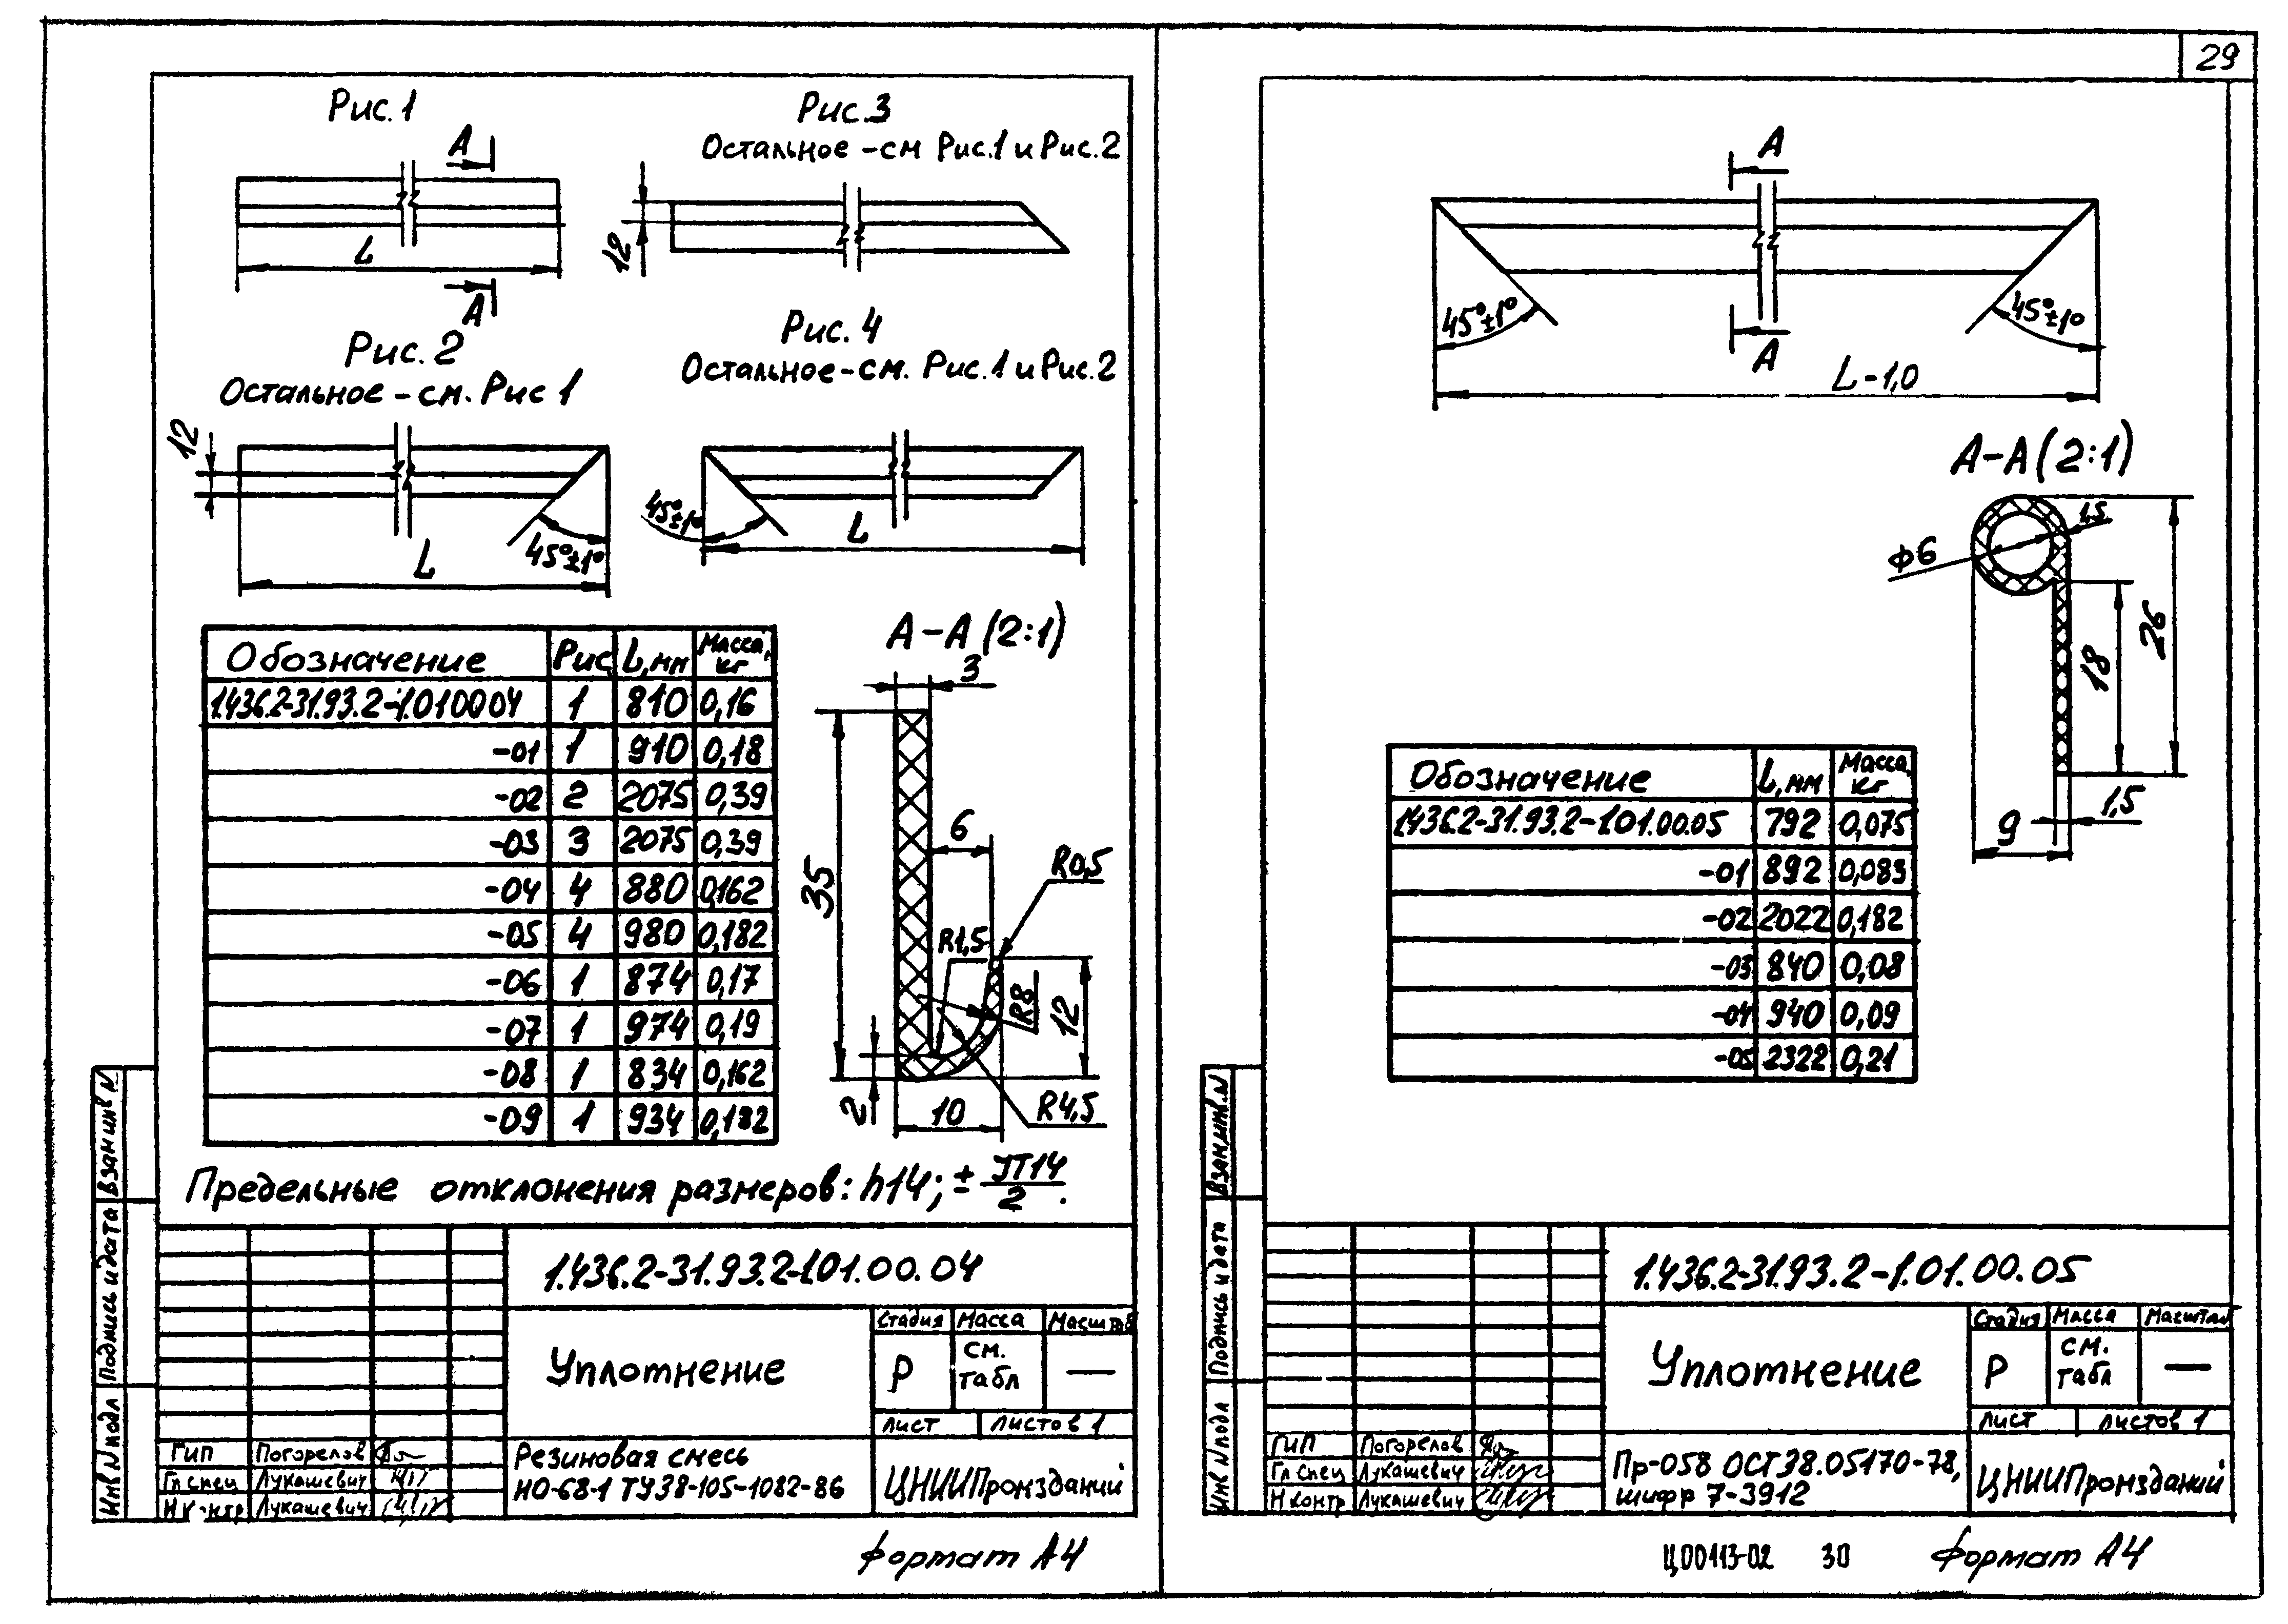 29
Рис.1
А
L
А
Рис.3
Остальное -см Рис.1 и Рис.2
12
Рис. 2
Остальное - см. Рис 1
12
45°±1°
L
Рис. 4
Остальное-см. Рис.1 и Рис.2
45°±1°
L
Обозначение Рис L,мм Масса, кг
1.436.2-31.93.2-1.010004 1 810 0,16
-01 1 910 0,18
-02 2 2075 0,39
-03 3 2075 0,39
-04 4 880 0,162
-05 4 980 0,182
-06 1 874 0,17
-07 1 974 0,19
-08 1 834 0,162
-09 1 934 0,182
А-А (2:1)
3
35
6
R0,5
R1,5
R8
12
2
10
R4,5
Предельные отклонения размеров: h14; ± JT14/2.
1.436.2-31.93.2-1.01.00.04
Уплотнение
Стадия Масса Масштаб
Р см. табл —
Лист Листов 1
Резиновая смесь
НО-68-1 ТУ38-105-1082-86
ЦНИИПромзданий
ГИП Погорелов
Гл спец Лукашевич
Н к-нтр Лукашевич
Инв N подл Подпись и дата Взан инв N
Формат А4
А
45°±1°
45°±1°
А
L-1,0
А-А (2:1)
1,5
ф6
26
18
1,5
9
Обозначение L,мм Масса, кг
1.436.2-31.93.2-1.01.00.05 792 0,075
-01 892 0,083
-02 2022 0,182
-03 840 0,08
-04 940 0,09
-05 2322 0,21
1.436.2-31.93.2-1.01.00.05
Уплотнение
Стадия Масса Масштаб
Р см. табл —
Лист Листов 1
Пр-058 ОСТ38.05170-78,
шифр 7-3912
ЦНИИПромзданий
ГИП Погорелов
Гл спец Лукашевич
Н контр Лукашевич
Инв N подл Подпись и дата Взан.инв.N
Ц00113-02 30 Формат А4